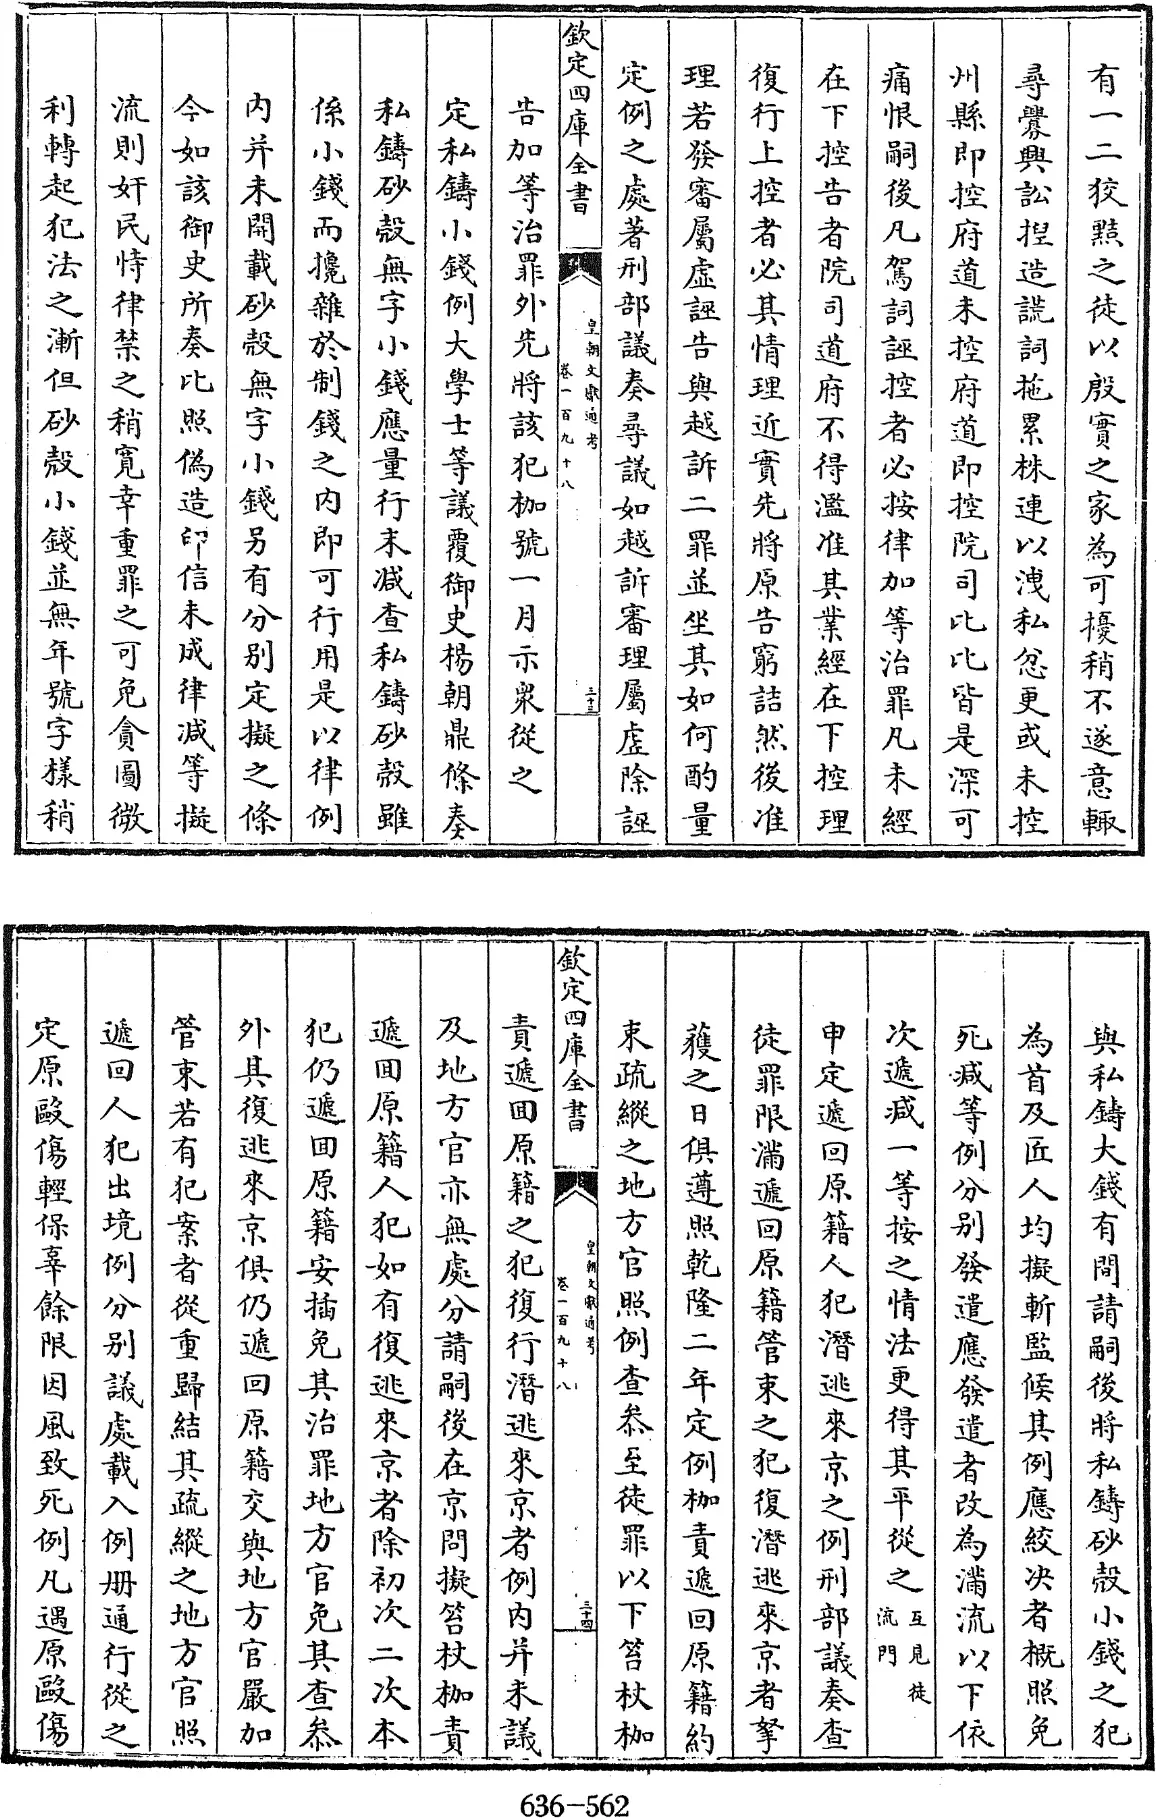 有一二狡黠之徒以殷實之家為可擾稍不遂意輙
尋釁興訟揑造謊詞拖累株連以洩私忿更或未控
州縣即控府道未控府道即控院司比比皆是深可
痛恨嗣後凡駕詞誣控者必按律加等治罪凡未經
在下控告者院司道府不得濫准其業經在下控理
復行上控者必其情理近實先將原告窮詰然後准
理若發審屬虛誣告與越訴二罪並坐其如何酌量
定例之處著刑部議奏尋議如越訴審理屬虛除誣
欽定四庫全書
皇朝文獻通考
卷一百九十八
三十三
告加等治罪外先將該犯枷號一月示衆從之
定私鑄小錢例大學士等議覆御史楊朝鼎條奏
私鑄砂殻無字小錢應量行末減查私鑄砂殻雖
係小錢而攙雜於制錢之內即可行用是以律例
內并未開載砂殻無字小錢另有分别定擬之條
今如該御史所奏比照偽造印信未成律減等擬
流則奸民恃律禁之稍寛幸重罪之可免貪圖微
利轉起犯法之漸但砂殻小錢並無年號字樣稍
與私鑄大錢有間請嗣後將私鑄砂殻小錢之犯
為首及匠人均擬斬監候其例應絞决者概照免
死減等例分别發遣應發遣者改為滿流以下依
次遞減一等按之情法更得其平從之互見徒
流門
申定遞回原籍人犯潛逃來京之例刑部議奏查
徒罪限滿遞回原籍管束之犯復潛逃來京者拏
獲之日俱遵照乾隆二年定例枷責遞回原籍約
束疏縱之地方官照例查叅至徒罪以下笞杖枷
欽定四庫全書
皇朝文獻通考
卷一百九十八
三十四
責遞囬原籍之犯復行潛逃來京者例内并未議
及地方官亦無處分請嗣後在京問擬笞杖枷責
遞囬原籍人犯如有復逃來京者除初次二次本
犯仍遞囬原籍安插免其治罪地方官免其查叅
外其復逃來京俱仍遞回原籍交與地方官嚴加
管束若有犯案者從重歸結其疏縱之地方官照
遞回人犯出境例分别議處載入例册通行從之
定原毆傷輕保辜餘限因風致死例凡遇原毆傷
636-562